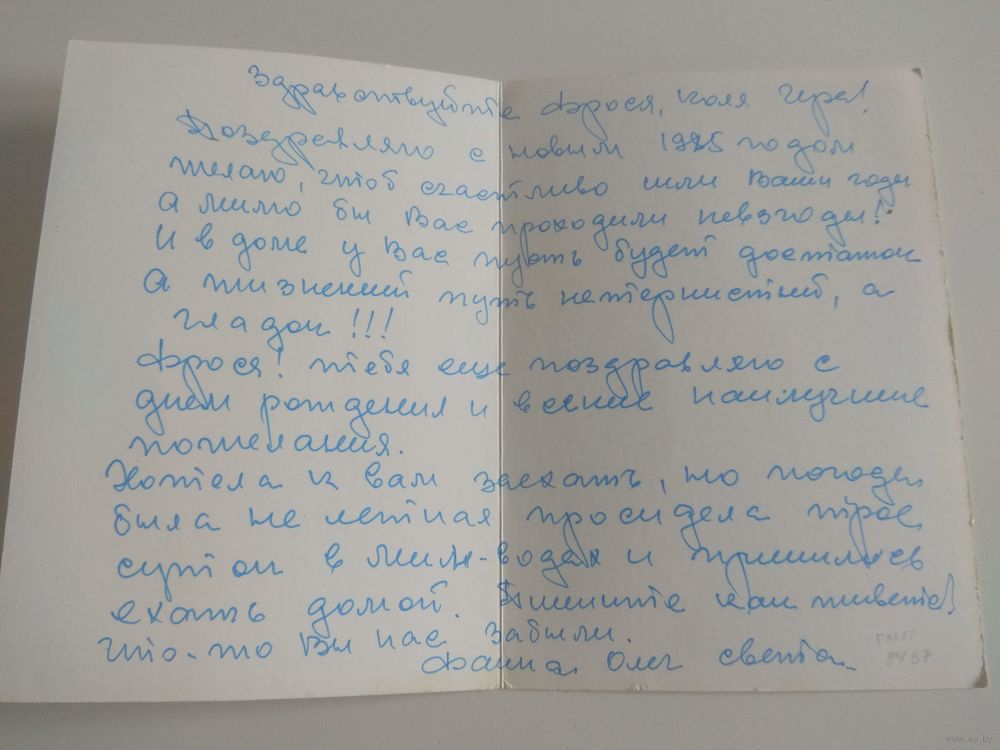 Здравствуйте Фрося, Коля Гера!
Поздравляю с новым 1985 годом
желаю, чтоб счастливо шли Ваши годы
А мимо бы Вас проходили невзгоды!
И в доме у Вас пусть будет достаток
А жизненный путь нетернистый, а
гладок!!!
Фрося! тебя еще поздравляю с
днем рождения и всякие наилучшие
пожелания.
Хотела к вам заехать, но погода
была не летная просидела трое
суток в мин-водах и пришлось
ехать домой. Пишите как живете!
Что-то Вы нас забыли.
Фаина Олег Света
ГМП
9497
www.ay.by